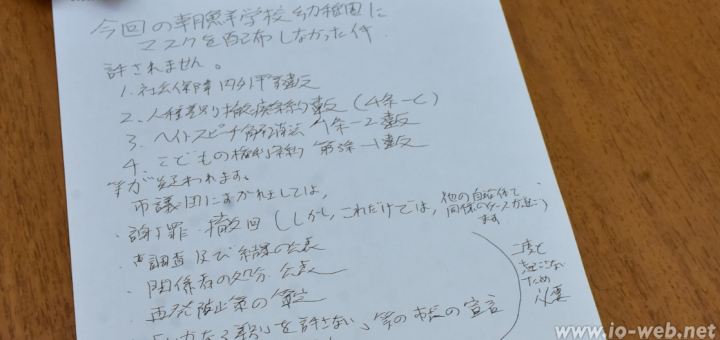 今回の朝鮮学校幼稚園に
マスクを配布しなかった件
許されません。
1. 社会保障内外平等違反
2. 人種差別撤廃条約違反(4条-C)
3. ヘイトスピーチ解消法 4条-2違反
4. こどもの権利条約 第 条-1違反
等が疑われます。
市議団にすがれましては、
・謝罪・撤回(しかし、これだけでは、他の自治体で同様のケースが起こります)
・調査及び結果の公表
・関係者の処分 公表
・再発防止策の策定
を許さない、等の市長の宣言
二度と
起こさない
ため
必要
www.io-web.net